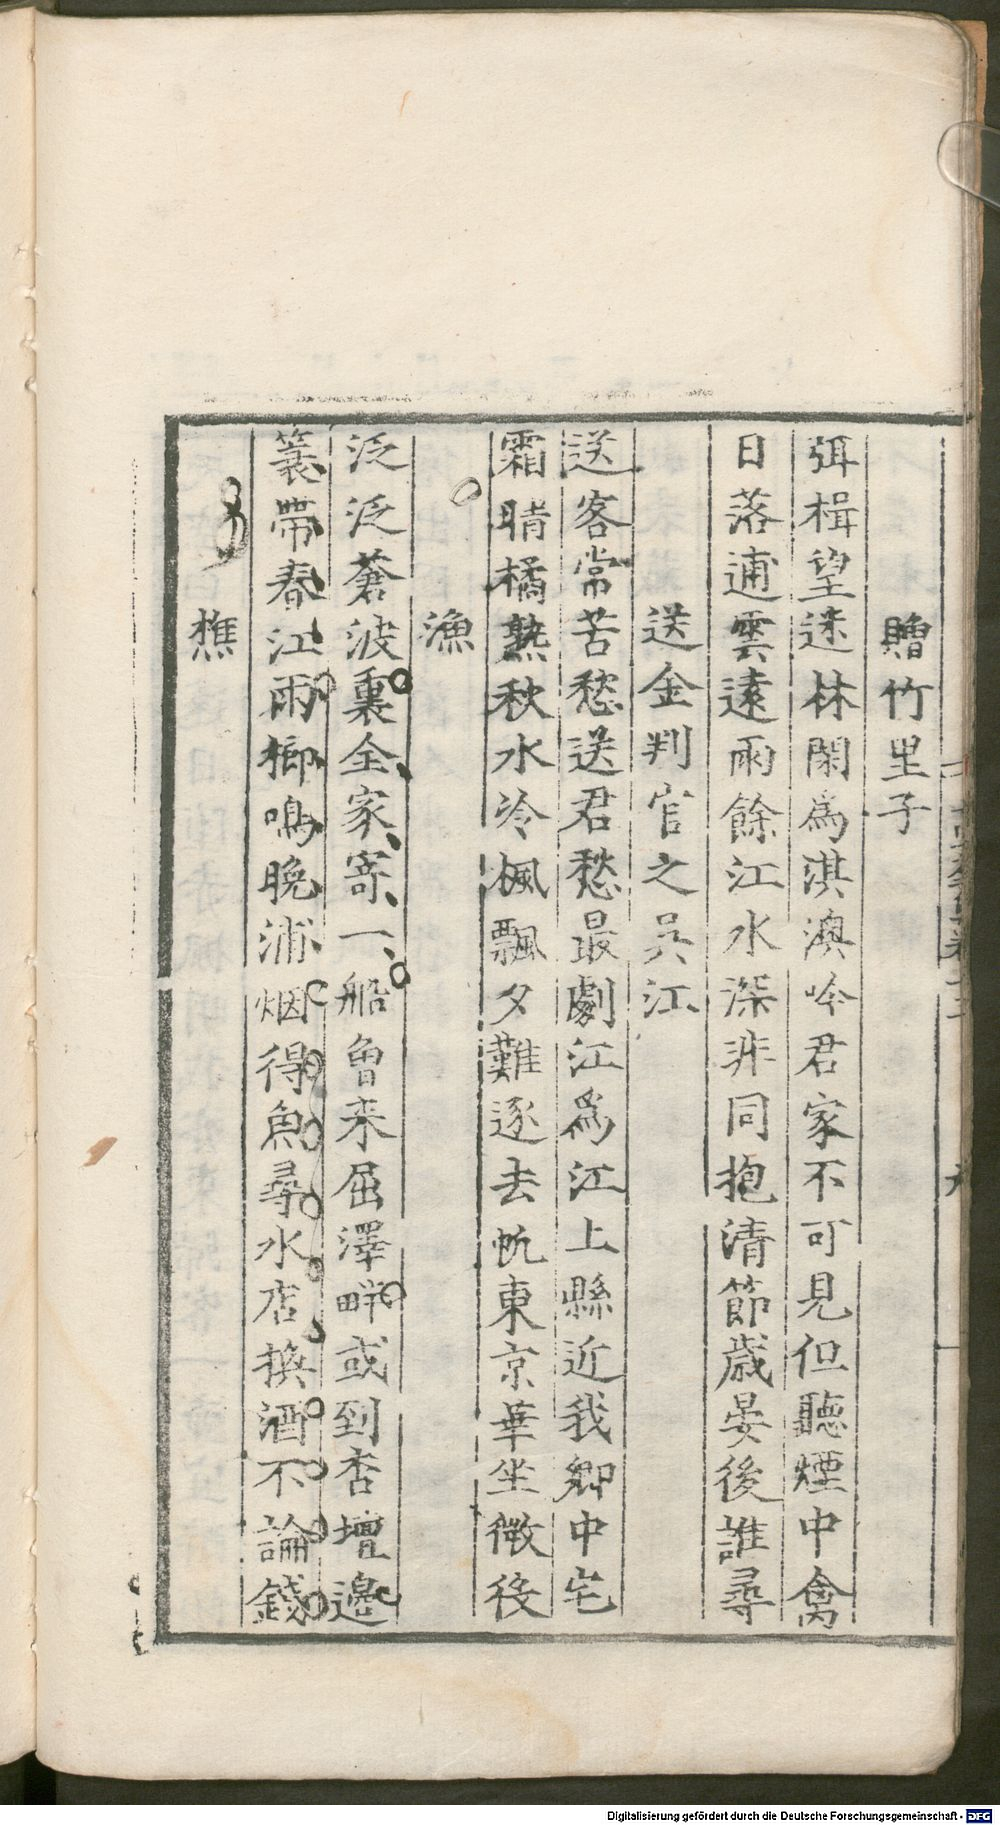 贈竹里子
弭楫望迷林閑為淇澳吟君家不可見但聽煙中禽
日落逋雲遠雨餘江水深非同抱清節歳晏後誰尋
送金判官之吳江
送客常苦愁送君愁最劇江為江上縣近我鄉中宅
霜晴橘熟秋水冷楓飄夕難逐去帆東京華坐微役
漁
泛泛蒼波裏全家寄一船曾来屈澤畔或到杏壇邊
簑帶春江雨榔鳴晚浦烟得魚尋水店換酒不論錢
樵
Digitalisierung gefördert durch die Deutsche Forschungsgemeinschaft - DFG